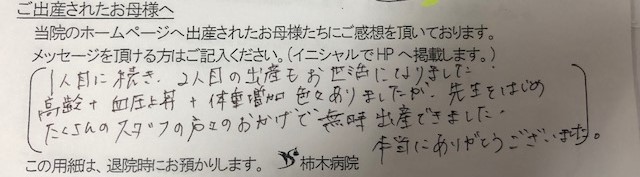 ご出産されたお母様へ
当院のホームページへ出産されたお母様たちにご感想を頂いております。
メッセージを頂ける方はご記入ください。(イニシャルでHPへ掲載します。)
1人目に続き、2人目の出産もお世話になりました。
高齢+血圧上昇+体重増加 色々ありましたが、先生をはじめ
たくさんのスタッフの方々のおかげで無時出産できました。
本当にありがとうございました。
この用紙は、退院時にお預かりします。 柿木病院